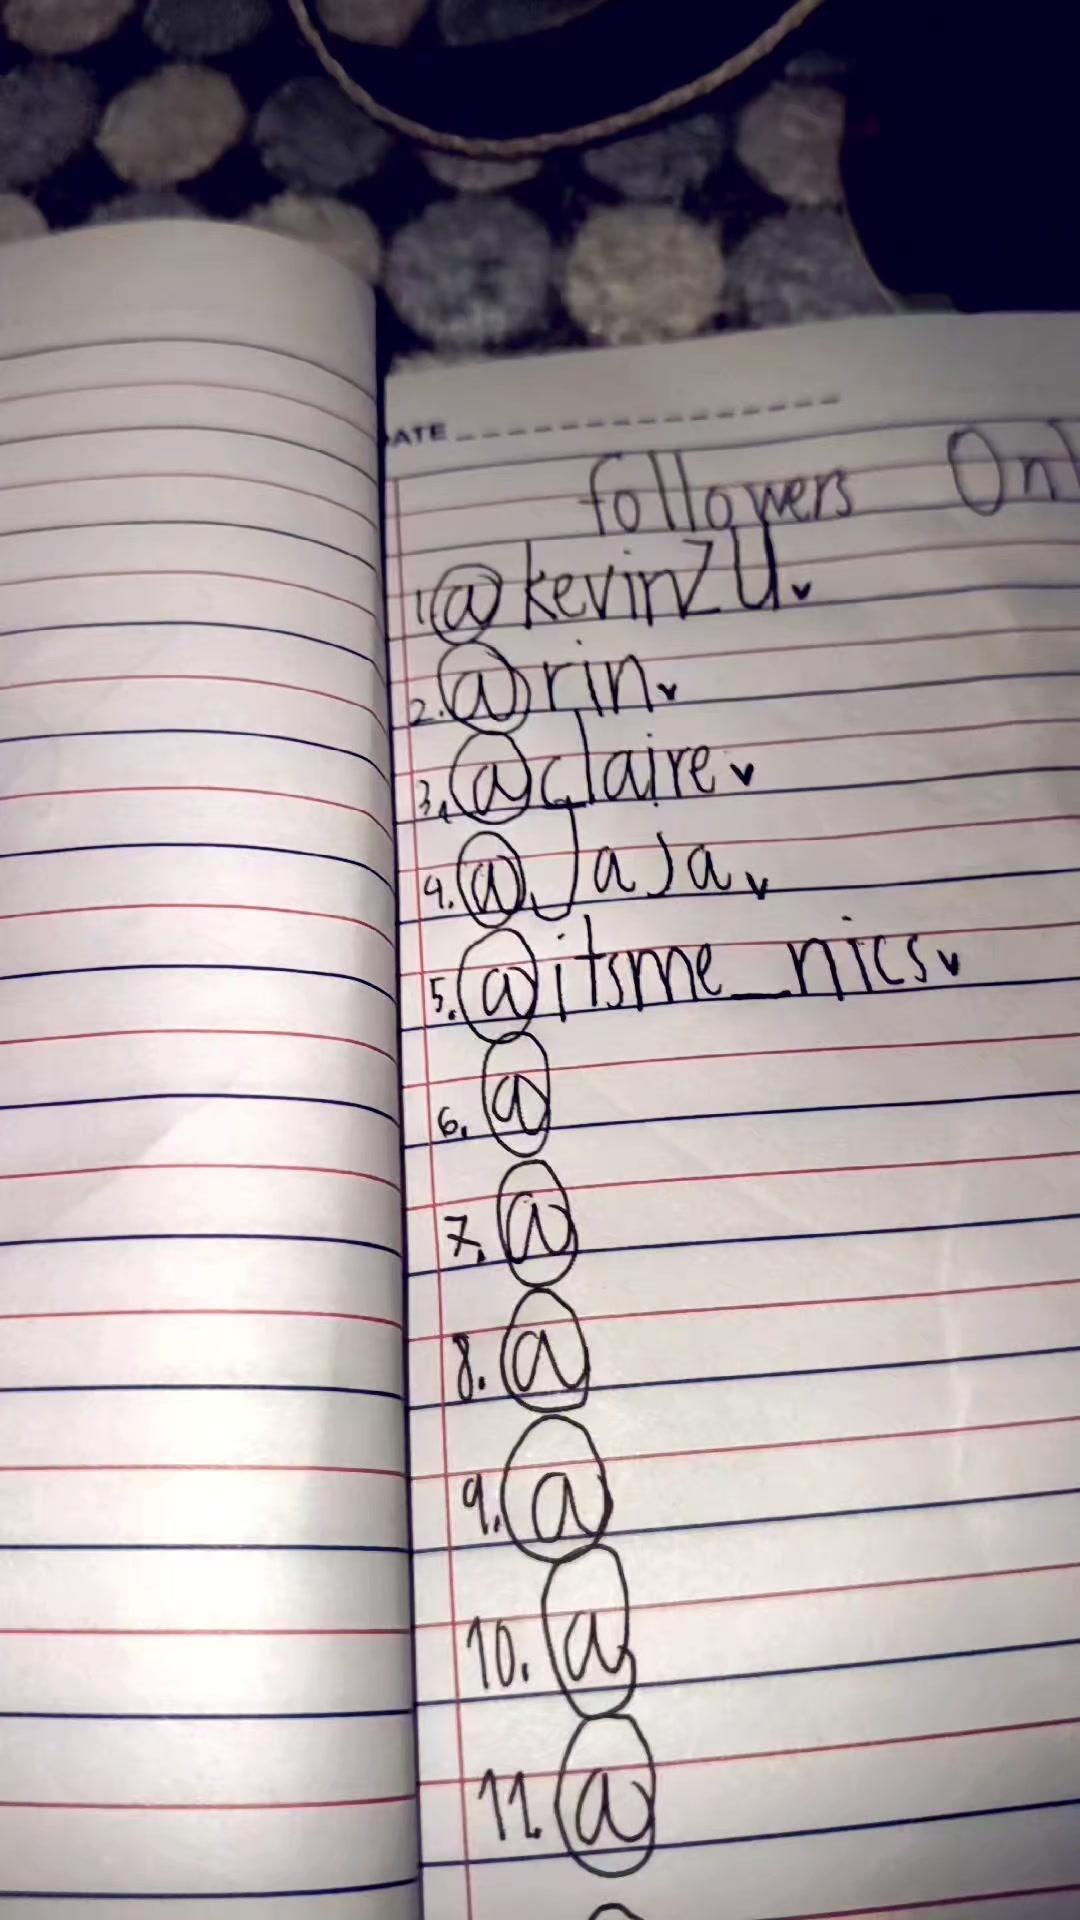 ATE
followers Onl
1. @kevinzU.v
2. @rin.v
3. @claire v
4. @JaJa v
5. @itsme_nics v
6. @
7. @
8. @
9. @
10. @
11. @